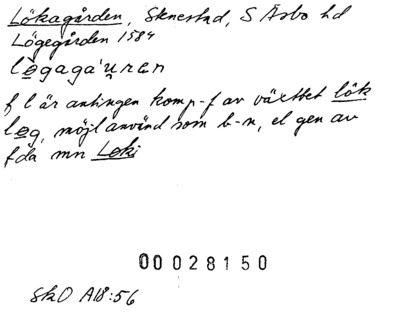 Lökagården, Sknestad, S Åsbo hd
Lögegården 1584
lø̀gaga'u̯ren
f l är antingen komp-f av växtbet lök
løg, möjl använd som b-n, el gen av
fda mn Løki
00028150
SkO A18:56